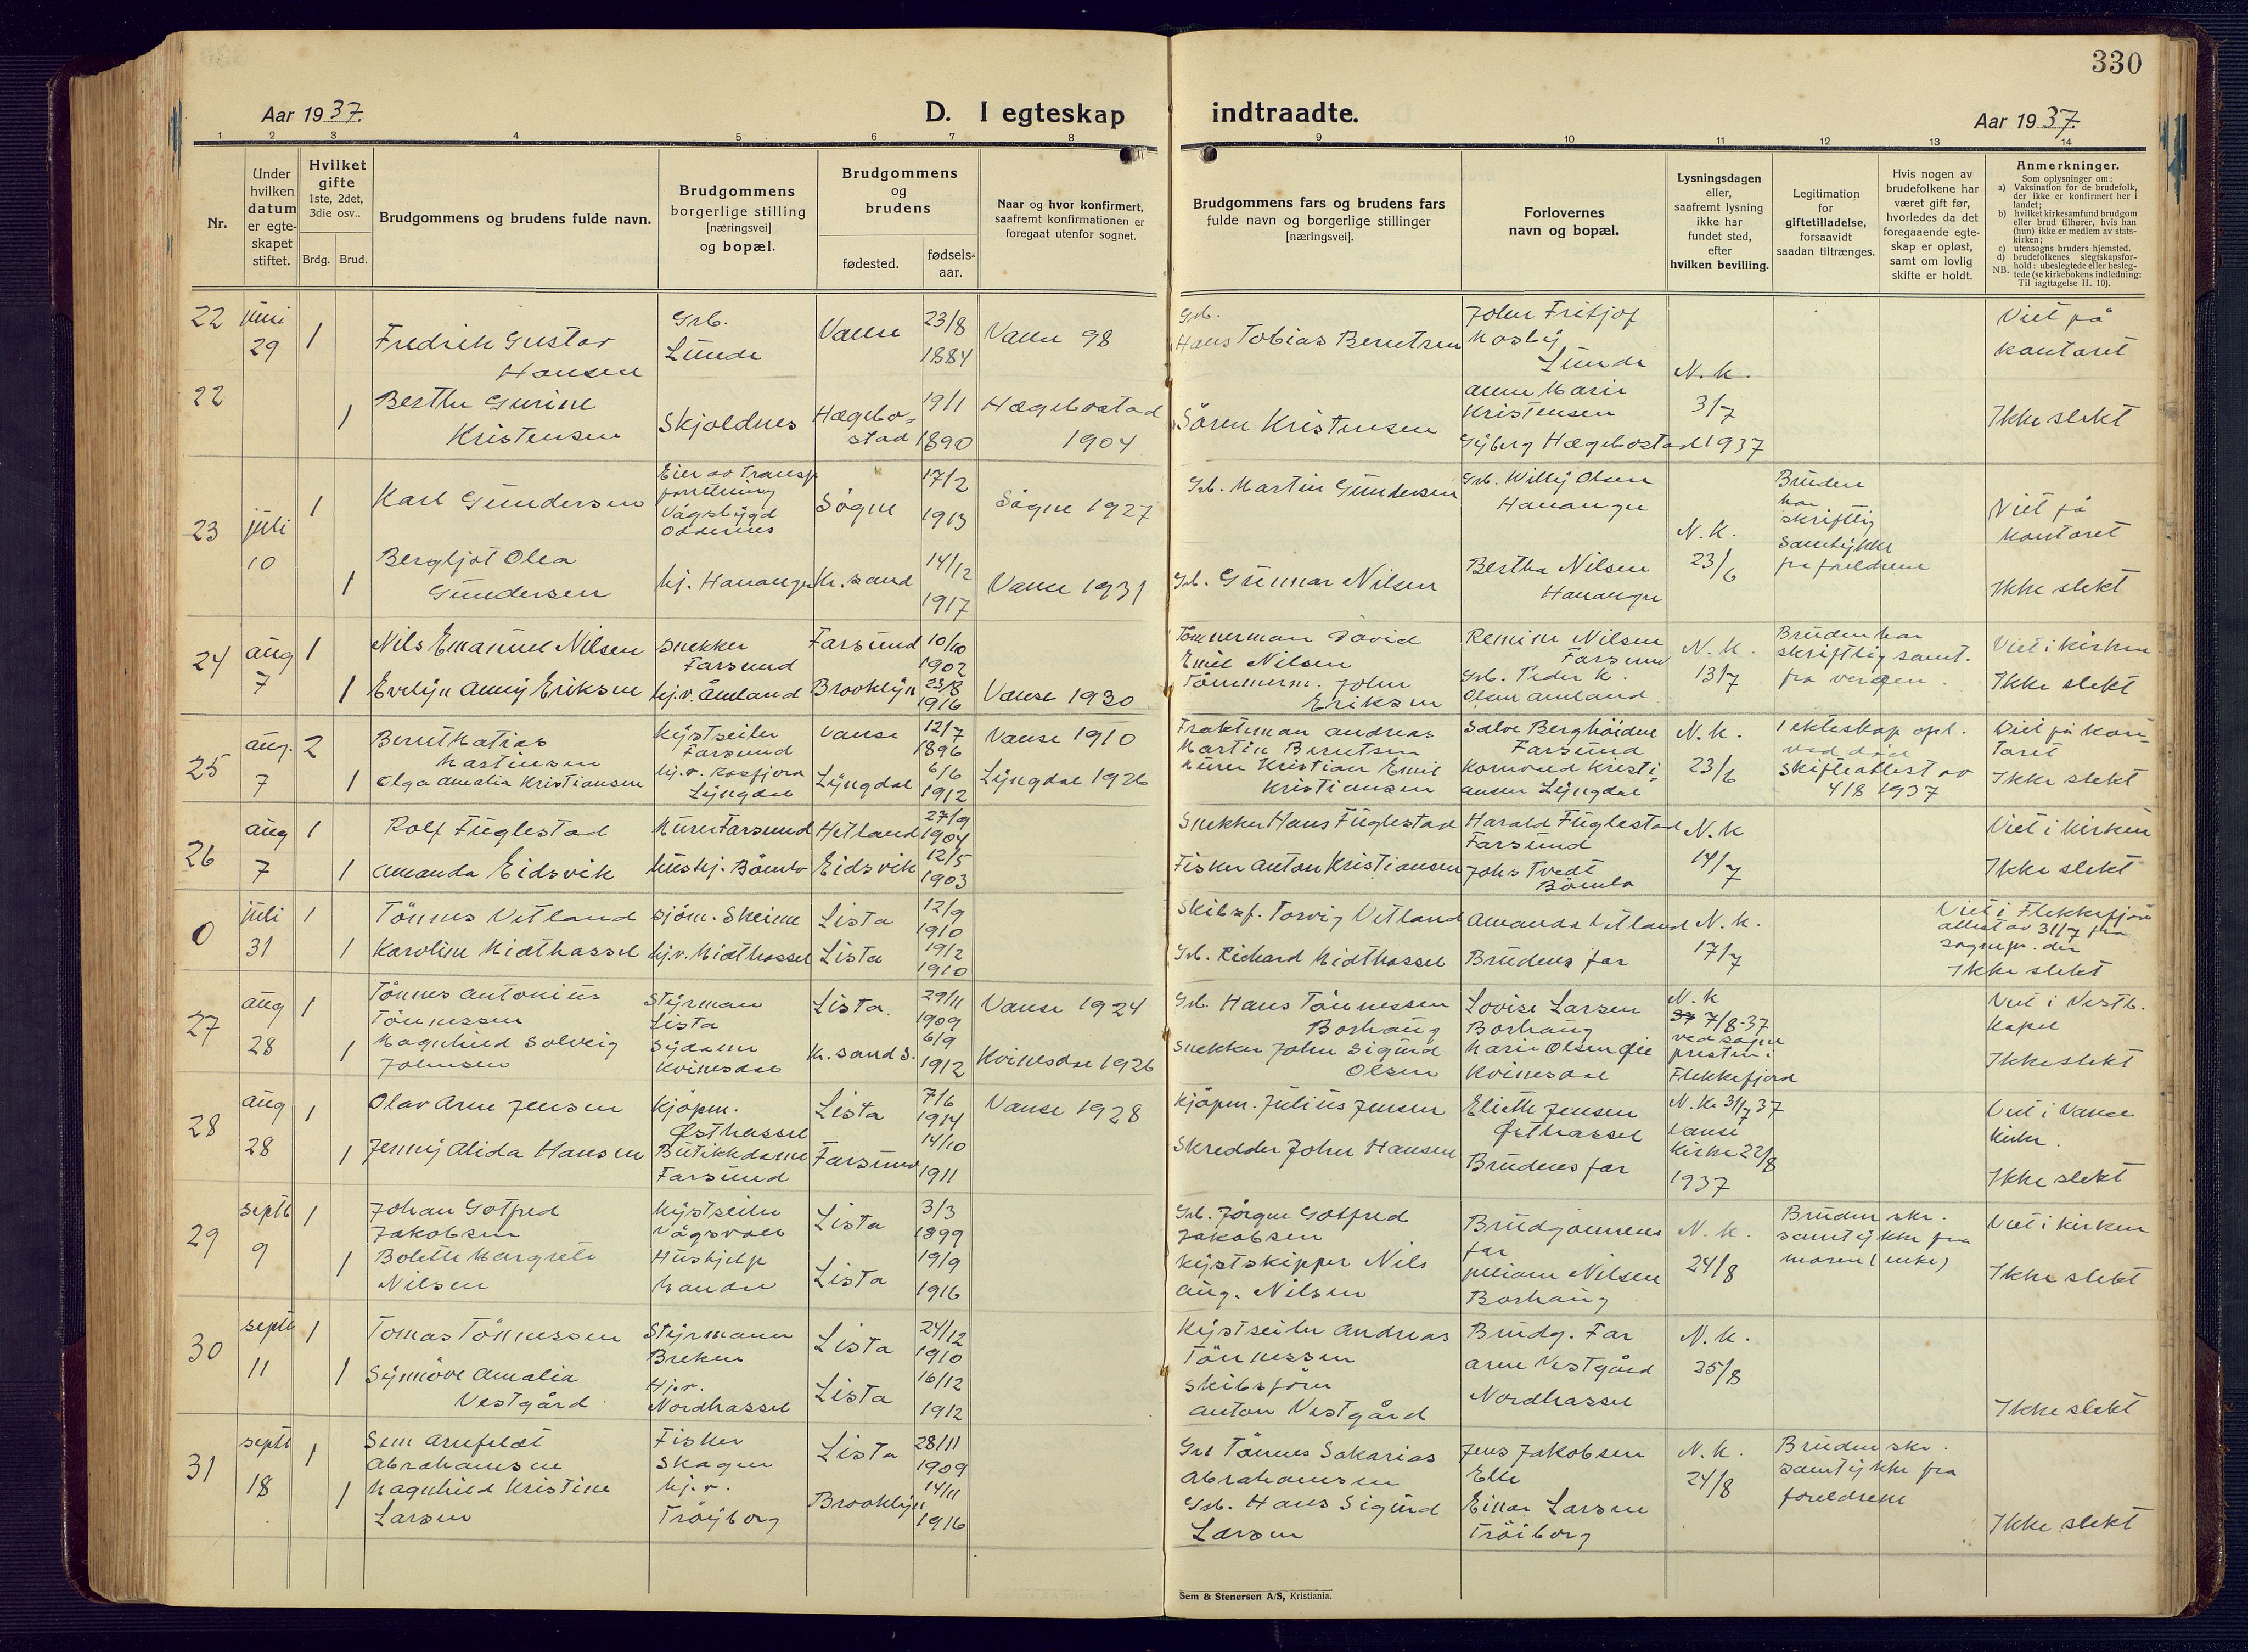 330
Aar 1937.
D. I egteskap indtraadte.
Aar 1937.
1 2 3 4 5 6 7 8 9 10 11 12 13 14
Nr.
Under hvilken datum er egteskapet stiftet.
Hvilket gifte 1ste, 2det, 3die osv..
Brdg. Brud.
Brudgommens og brudens fulde navn.
Brudgommens borgerlige stilling [næringsvei] og bopæl.
Brudgommens og brudens
fødested.
fødselsaar.
Naar og hvor konfirmert, saafremt konfirmationen er foregaat utenfor sognet.
Brudgommens fars og brudens fars fulde navn og borgerlige stillinger [næringsvei].
Forlovernes navn og bopæl.
Lysningsdagen eller, saafremt lysning ikke har fundet sted, efter hvilken bevilling.
Legitimation for giftetilladelse, forsaavidt saadan tiltrænges.
Hvis nogen av brudefolkene har været gift før, hvorledes da det foregaaende egteskap er opløst, samt om lovlig skifte er holdt.
Anmerkninger.
Som oplysninger om:
a) Vaksination for de brudefolk, der ikke er konfirmert her i landet;
b) hvilket kirkesamfund brudgom eller brud tilhører, hvis han (hun) ikke er medlem av statskirken;
c) utensogns bruders hjemsted.
d) brudefolkenes slegtskapsforhold: ubeslegtede eller beslegtede (se kirkebokens indledning: NB. Til iagttagelse II. 10).
22 juni 29 1 Fredrik Gustav Hansen Grb. Lunde Vanse 23/8 1884 Vanse 98 Grb. Hans Tobias Berntsen John Fritjof Mosbÿ Lunde N. K. Viet på kontoret
22 1 Berthe Gurine Kristensen Skjoldnes Hægebostad 19/1 1890 Hægebostad 1904 Sören Kristensen Anne Marie Kristensen Gÿberg Hægebostad 3/7 1937 Ikke slekt
23 juli 10 1 Karl Gundersen Eier av Transp forretning Vågsbÿgd Oddernes Søgne 17/2 1913 Søgne 1927 Grb. Martin Gundersen Grb. Willÿ Olsen Hananger N. K. 23/6 Bruden har skriftlig samtÿkke fra foreldrene Viet på kontoret
1 Bergljot Olea Gundersen hj. Hananger Kr.sand 14/12 1917 Vanse 1931 Grb. Gunnar Nilsen Bertha Nilsen Hananger Ikke slekt
24 aug 7 1 Nils Emanuel Nilsen Snekker Farsund Farsund 10/10 1902 Tömmerman David Emil Nilsen Remine Nilsen Farsund N. K. 13/7 Bruden har skriftlig samt. fra vergen. Viet i kirken
1 Evelÿn Annÿ Eriksen hj.v. Åmland Brooklÿn 23/8 1916 Vanse 1930 Tömmerm. John Eriksen Grb. Peder K. Olsen Amland Ikke slekt
25 aug. 7 2 Bernt Matias Martinsen Kÿstseiler Farsund Vanse 12/7 1896 Vanse 1910 Frakteman Andreas Martin Berntsen Salve Berghöidne Farsund N. K. 23/6 1 ekteskap opl. ved död skifteattest av 4/8 1937 Viet på kontoret
1 Olga Amalia Kristiansen hj.v. Rosfjord Lÿngdal Lÿngdal 6/6 1912 Lÿngdal 1926 Murer Kristian Emil Kristiansen Kornvald Kristiansen Lÿngdal Ikke slekt
26 aug 7 1 Rolf Fuglestad Murer Farsund Hetland 27/9 1904 Snekker Hans Fuglestad Harald Fuglestad Farsund N. K 14/7 Viet i kirken
1 Amanda Eidsvik hushj. Bömlo Eidsvik 12/5 1903 Fisker Anton Kristiansen Johs Tvedt Bömlo Ikke slekt
0 juli 31 1 Tönnes Vetland sjöm. Skeime Lista 12/9 1910 Skibsf. Torvig Vetland Amanda Vetland N. K. 17/7 Viet i Flekkefjord attest av 31/7 fra sognepr. der
1 Karoline Midthassel hj.v. Midthassel Lista 19/2 1910 Grb. Richard Midthassel Brudens far Ikke slekt
27 aug 28 1 Tönnes Antonius Tönnessen Stÿrman Lista Lista. 29/11 1909 Vanse 1924 Grb. Hans Tönnessen Borhaug Lovise Larsen Borhaug N. K 7/8-37 ved sognepresten i Flekkefjord Viet i Vestb. Kapel
1 Magnhild Solveig Johnsen Sÿdame Kvinesdal Kr. sand S. 6/9 1912 Kvinesdal 1926 Snekker John Sigurd Olsen Marie Olsen Øie Kvinesdal Ikke slekt
28 aug 28 1 Olav Arne Jensen Kjöpm. Østhassel Lista 7/6 1914 Vanse 1928 Kjöpm. Julius Jensen Elieth Jensen Østhassel N. K. 31/7 37 Vanse Kirke 22/8 1937 Viet i Vanse Kirke.
1 Jennÿ Alida Hansen Butikkdame Farsund Farsund 14/10 1911 Skredder John Hansen Brudens far Ikke slekt
29 septb 9 1 Johan Gotfred Jakobsen Kÿstseiler Vågsvoll Lista 3/3 1899 Grb. Jörgen Gotfred Jakobsen Brudgommens far N. K. 24/8 Bruden skr. samtÿkke fra moren (enke) Viet i kirken
1 Bolette Margrete Nilsen Hushjelp Lista 19/9 1916 Kÿstskipper Nils Aug. Nilsen Juliane Nilsen Borhaug Ikke slekt
30 septb 11 1 Tomas Tönnessen Stÿrmann Brekne Lista 24/12 1910 Kÿstseiler Andreas Tönnessen Brudg. Far N. K. 25/8
1 Sÿnnöve Amalia Vestgård Hj.v. Nordhassel Lista 16/12 1912 Skibsförer Anton Vestgård Arne Vestgård Nordhassel Ikke slekt
31 septb 18 1 Sem Arnfeldt Abrahamsen Fisker Skagen Lista 28/11 1909 Grb Tönnes Sakarias Abrahamsen Jens Jakobsen Elle N. K. 24/8 Bruden skr. samtÿkke fra foreldrene
1 Magnhild Kristine Larsen hj.v. Tröÿborg Brooklÿn 14/11 1916 Grb. Hans Sigurd Larsen Einar Larsen Tröiborg Ikke slekt
Sem & Stenersen A/S, Kristiania.